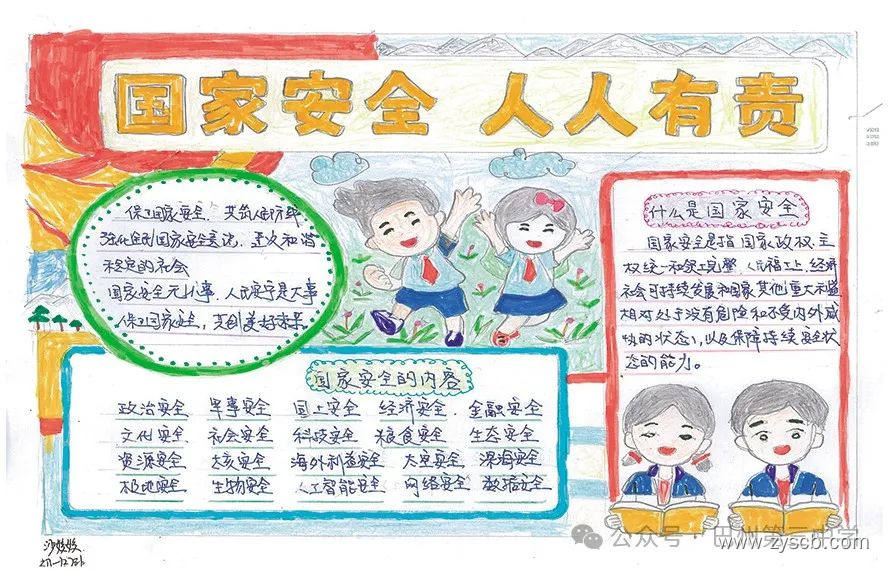 国家安全 人人有责
保卫国家安全，共筑人民防线
强化全民国家安全意识，建久和谐
稳定的社会
国家安全无小事，人民安宁是大事
保卫国家安全，共创美好未来
什么是国家安全
国家安全是指国家政权、主
权统一和领土完整、人民福祉、经济
社会可持续发展和国家其他重大利益
相对处于没有危险和不受内外威
胁的状态，以及保障持续安全状
态的能力。
国家安全的内容
政治安全 军事安全 国土安全 经济安全 金融安全
文化安全 社会安全 科技安全 粮食安全 生态安全
资源安全 太核安全 海外利益安全 太空安全 深海安全
极地安全 生物安全 人工智能安全 网络安全 数据安全
公众号·巴州第三中学
www.zyscb.com